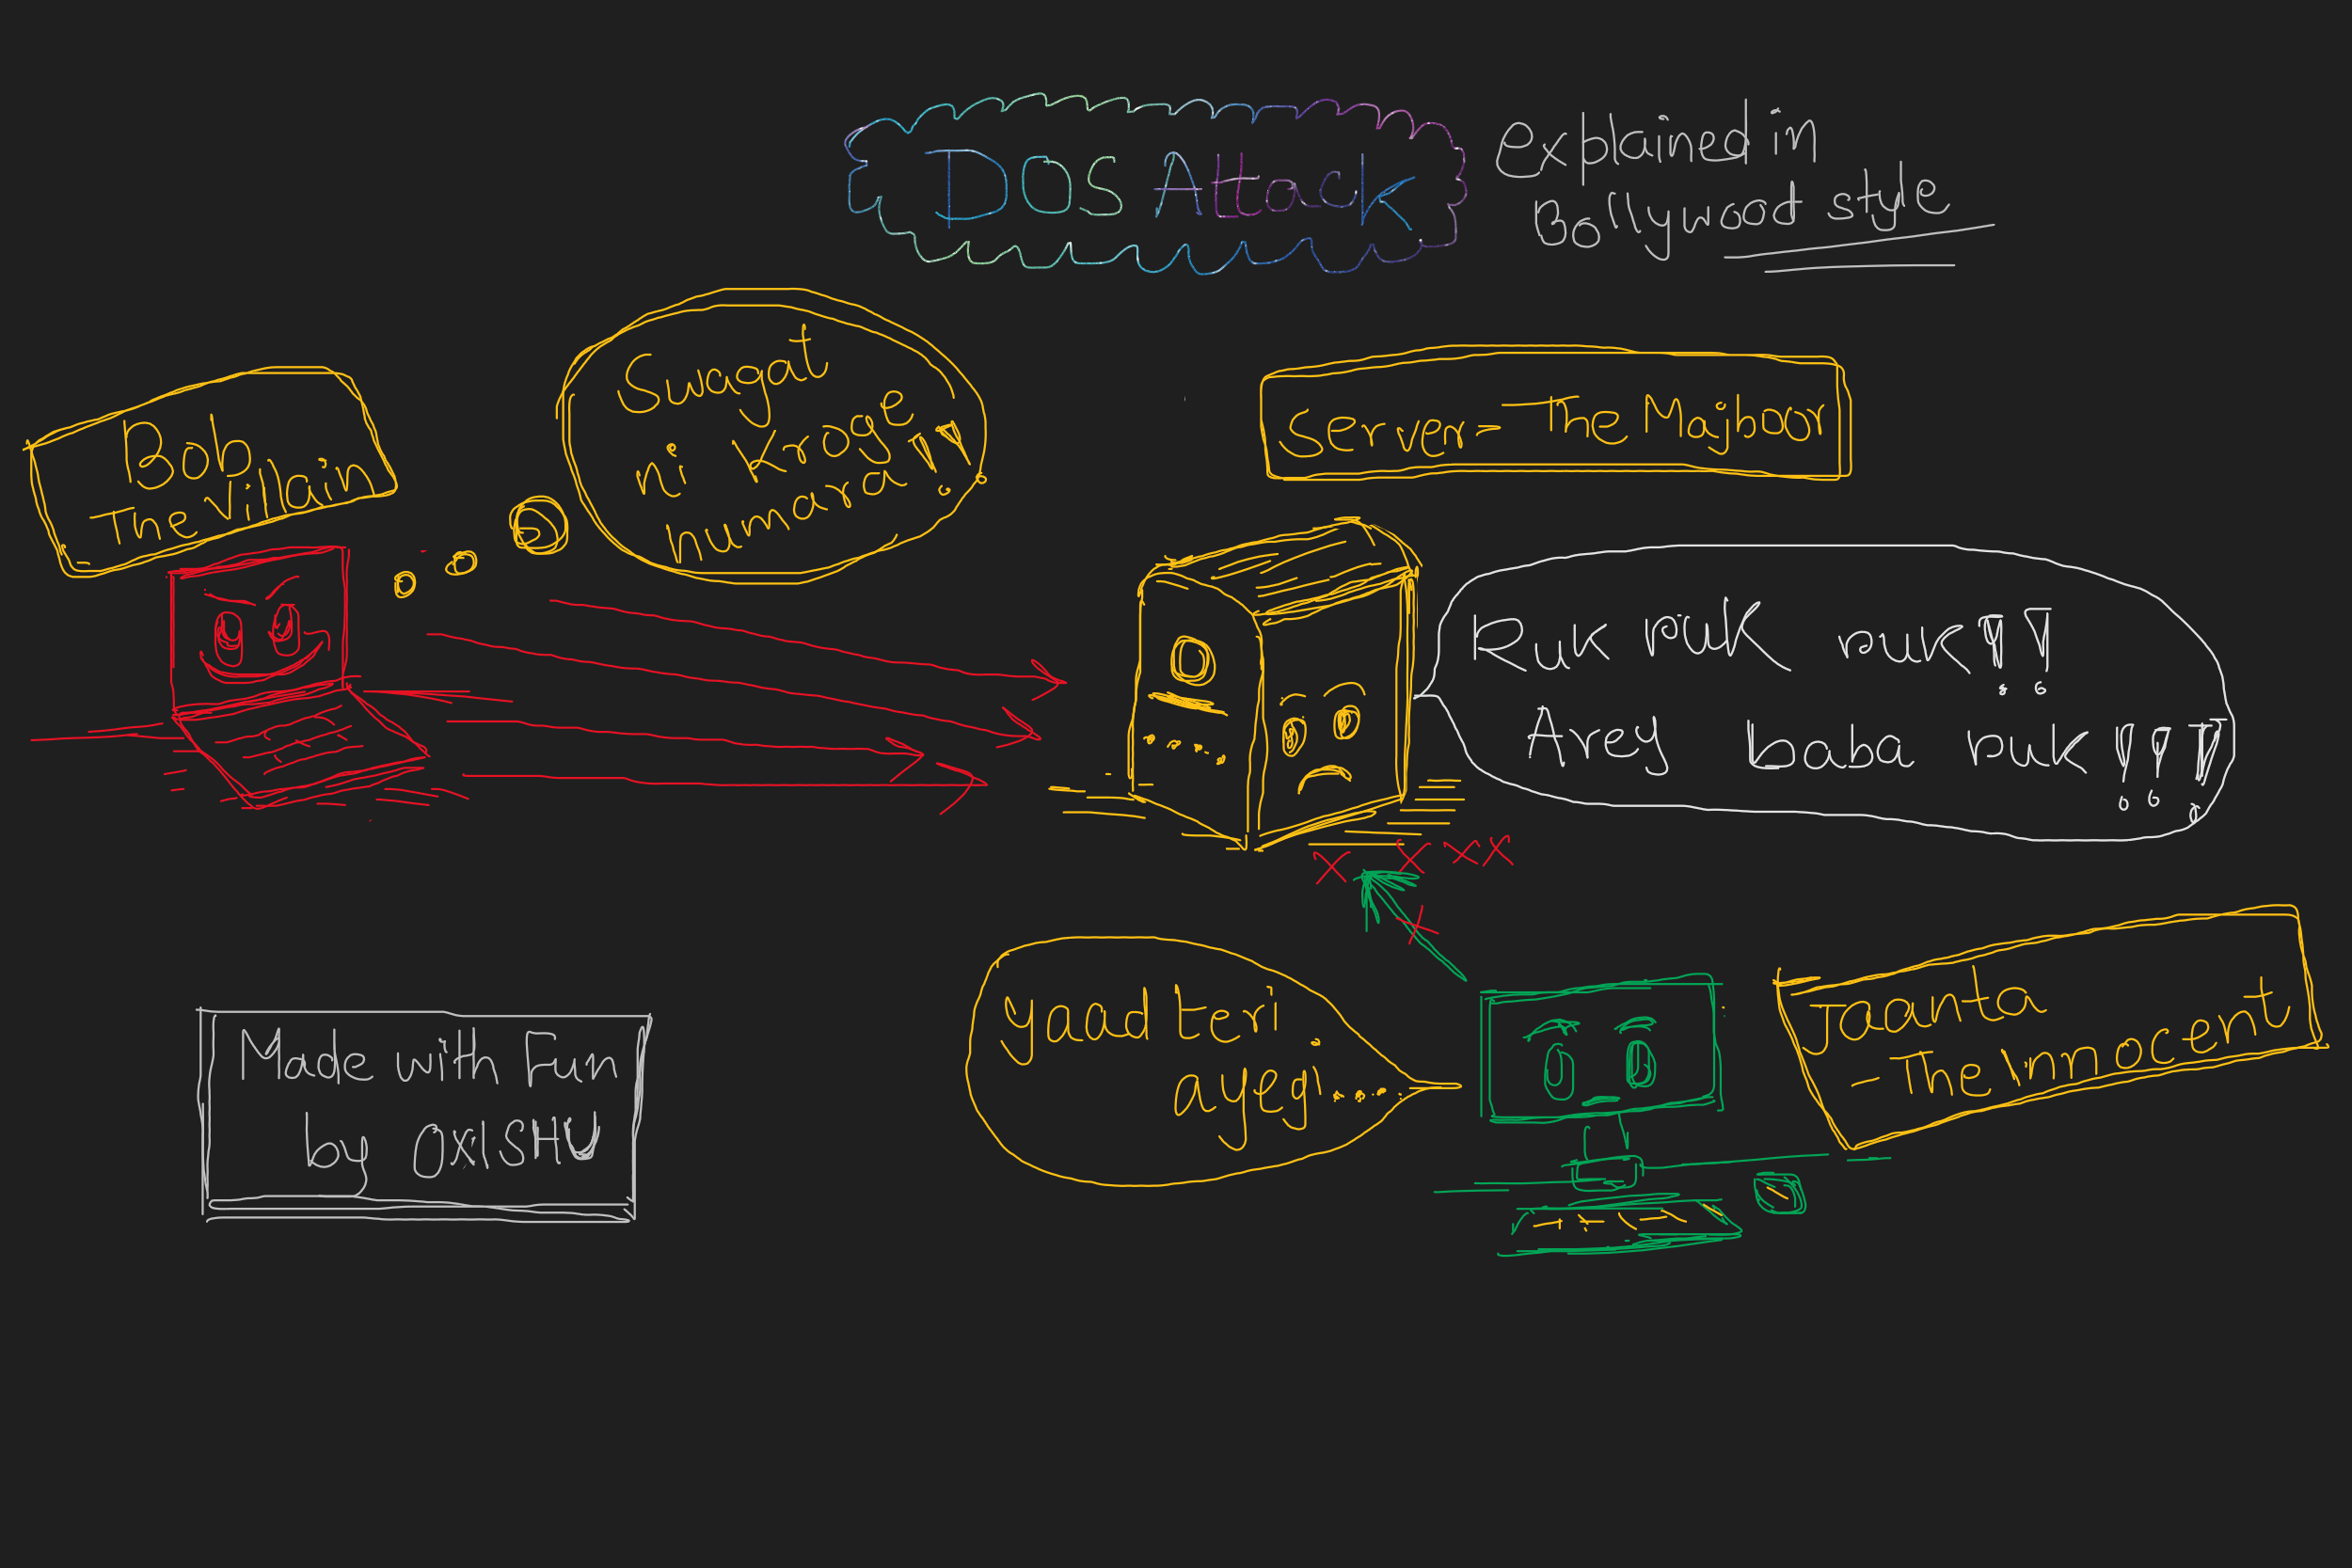 DOS Attack
explained in
Bollywood style
Bob
- The Villain
Swagat
ni Kroge
humara !!
Server - The Majboor
Ruk ruk ruk !!
Arey baba ruk !!!
Yaad teri
ayegi.....
Jaanta
- The innocent
Made with Fun
by OXISHU